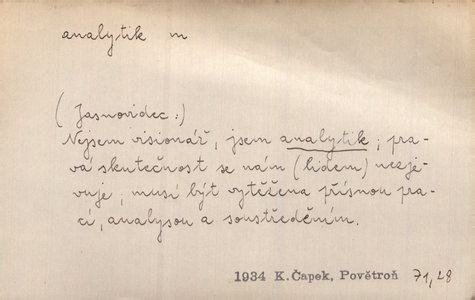 analytik m
(Jasnovidec:)
Nejsem visionář, jsem analytik; pra-
vá skutečnost se nám (lidem) nezje-
vuje; musí být vytěžena přísnou pra-
cí, analysou a soustředěním.
1934 K.Čapek, Povětroň 71,28